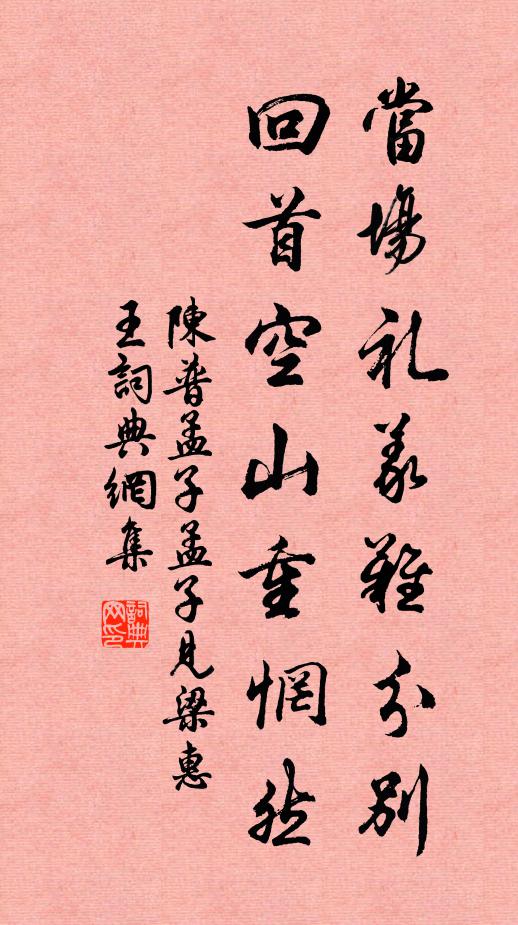 當場礼義難分別
回首空山重惘然
陳普孟子孟子見梁惠
王詞典網集
詞典网印